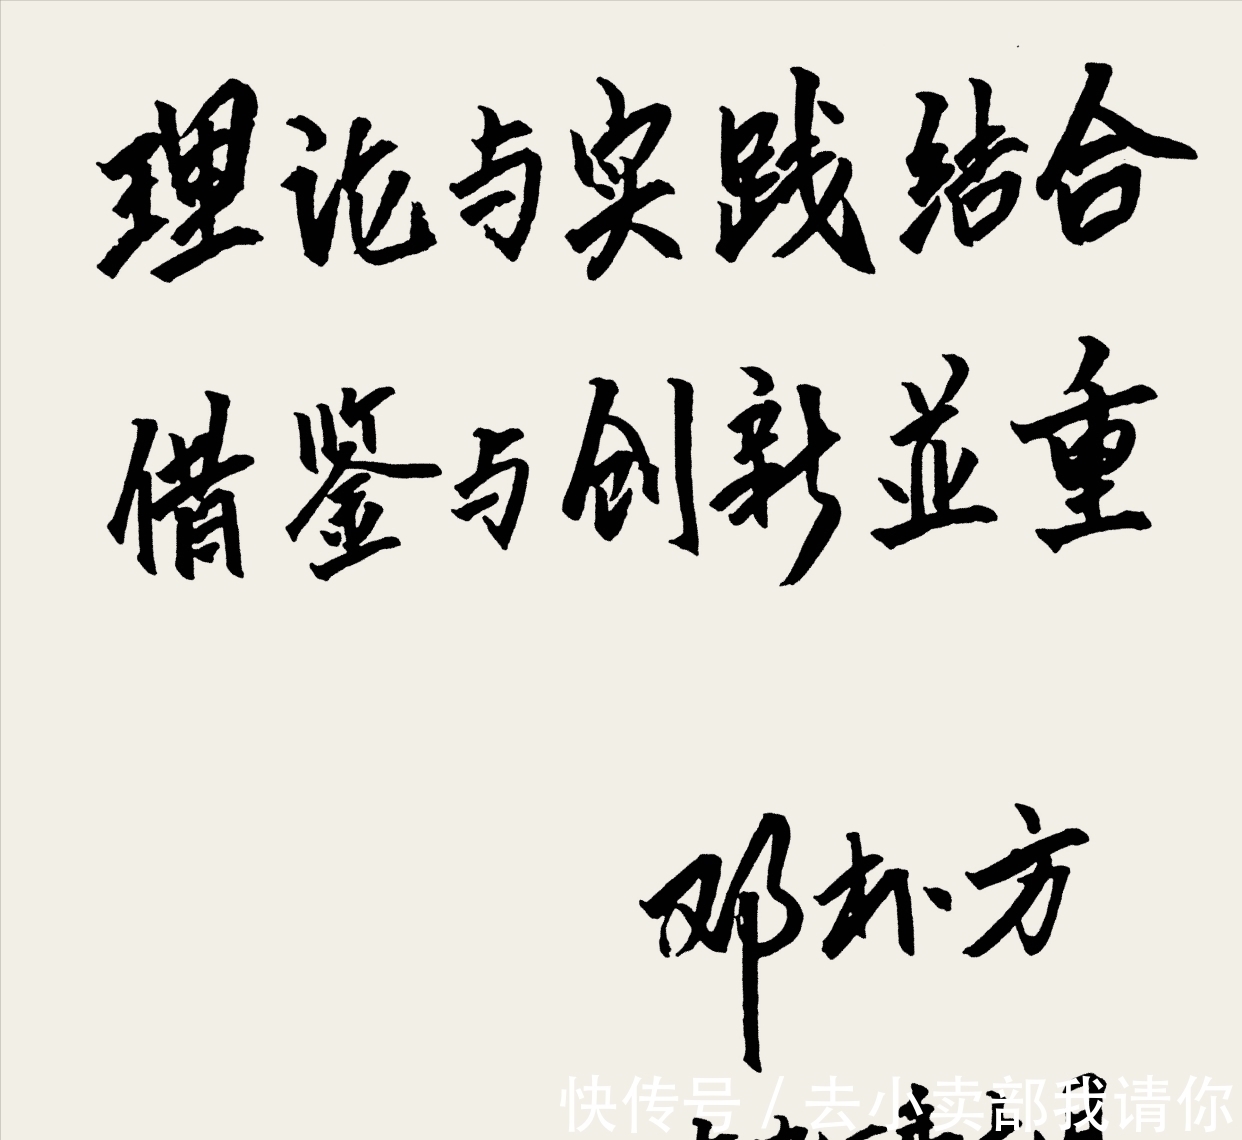 理论与实践结合
借鉴与创新並重
邓朴方
快传号/去小卖部我请你